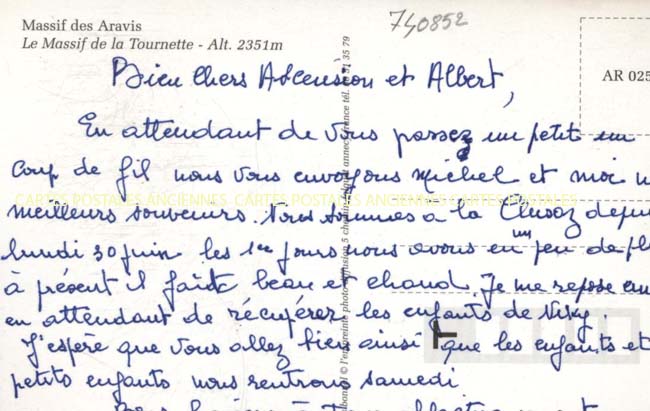 Massif des Aravis
Le Massif de la Tournette - Alt. 2351m
740852
AR 025
Bien Chers Ascension et Albert,
En attendant de vous passez un petit un
coup de fil nous vous envoyons Michel et moi n
CARTES POSTALES ANCIENNES CARTES POSTALES ANCIENNES CARTES POSTALES
meilleurs souvenirs. Nous sommes à la Clusaz depui
lundi 30 juin les 1er jours nous avons eu un peu de pl
à présent il fait beau et chaud. Je me repose
en attendant de récupérer les enfants de
J'espère que vous allez bien ainsi que les enfants et
petits enfants nous rentrons samedi